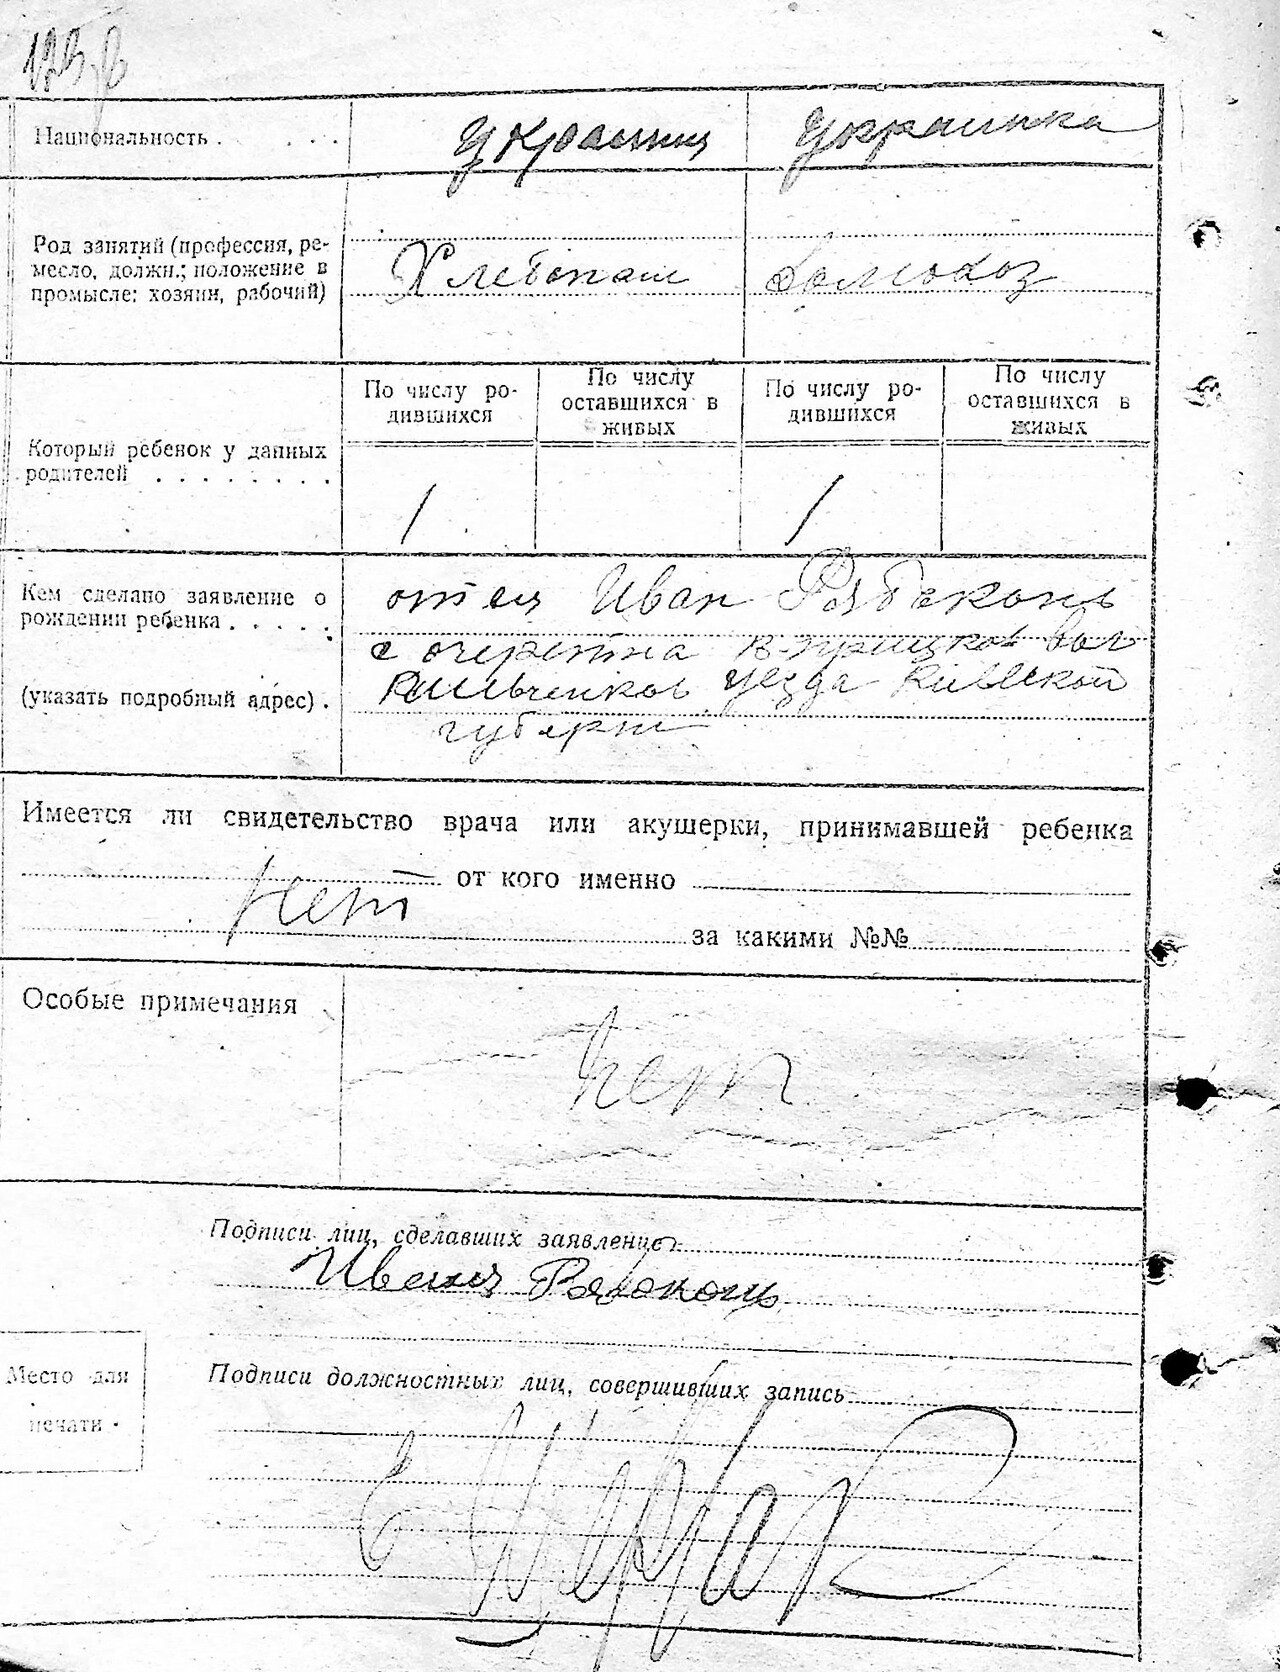 Национальность . . . . . украинец украинка
Род занятий (профессия, ре-
месло, должн.; положение в
промысле: хозяин, рабочий)
Хлебопаш домохоз
По числу ро-
дившихся
По числу
оставшихся в
живых
По числу ро-
дившихся
По числу
оставшихся в
живых
Который ребенок у данных
родителей . . . . . . . .
1 1
Кем сделано заявление о
рождении ребенка . . . . .
(указать подробный адрес) .
отец Иван Рябоконь
с очеретна вол
уезда Киевской
губерн
Имеется ли свидетельство врача или акушерки, принимавшей ребенка
нет от кого именно
за какими №№
Особые примечания
нет
Подписи лиц, сделавших заявление
Иван Рябоконь
Место для
печати
Подписи должностных лиц, совершивших запись